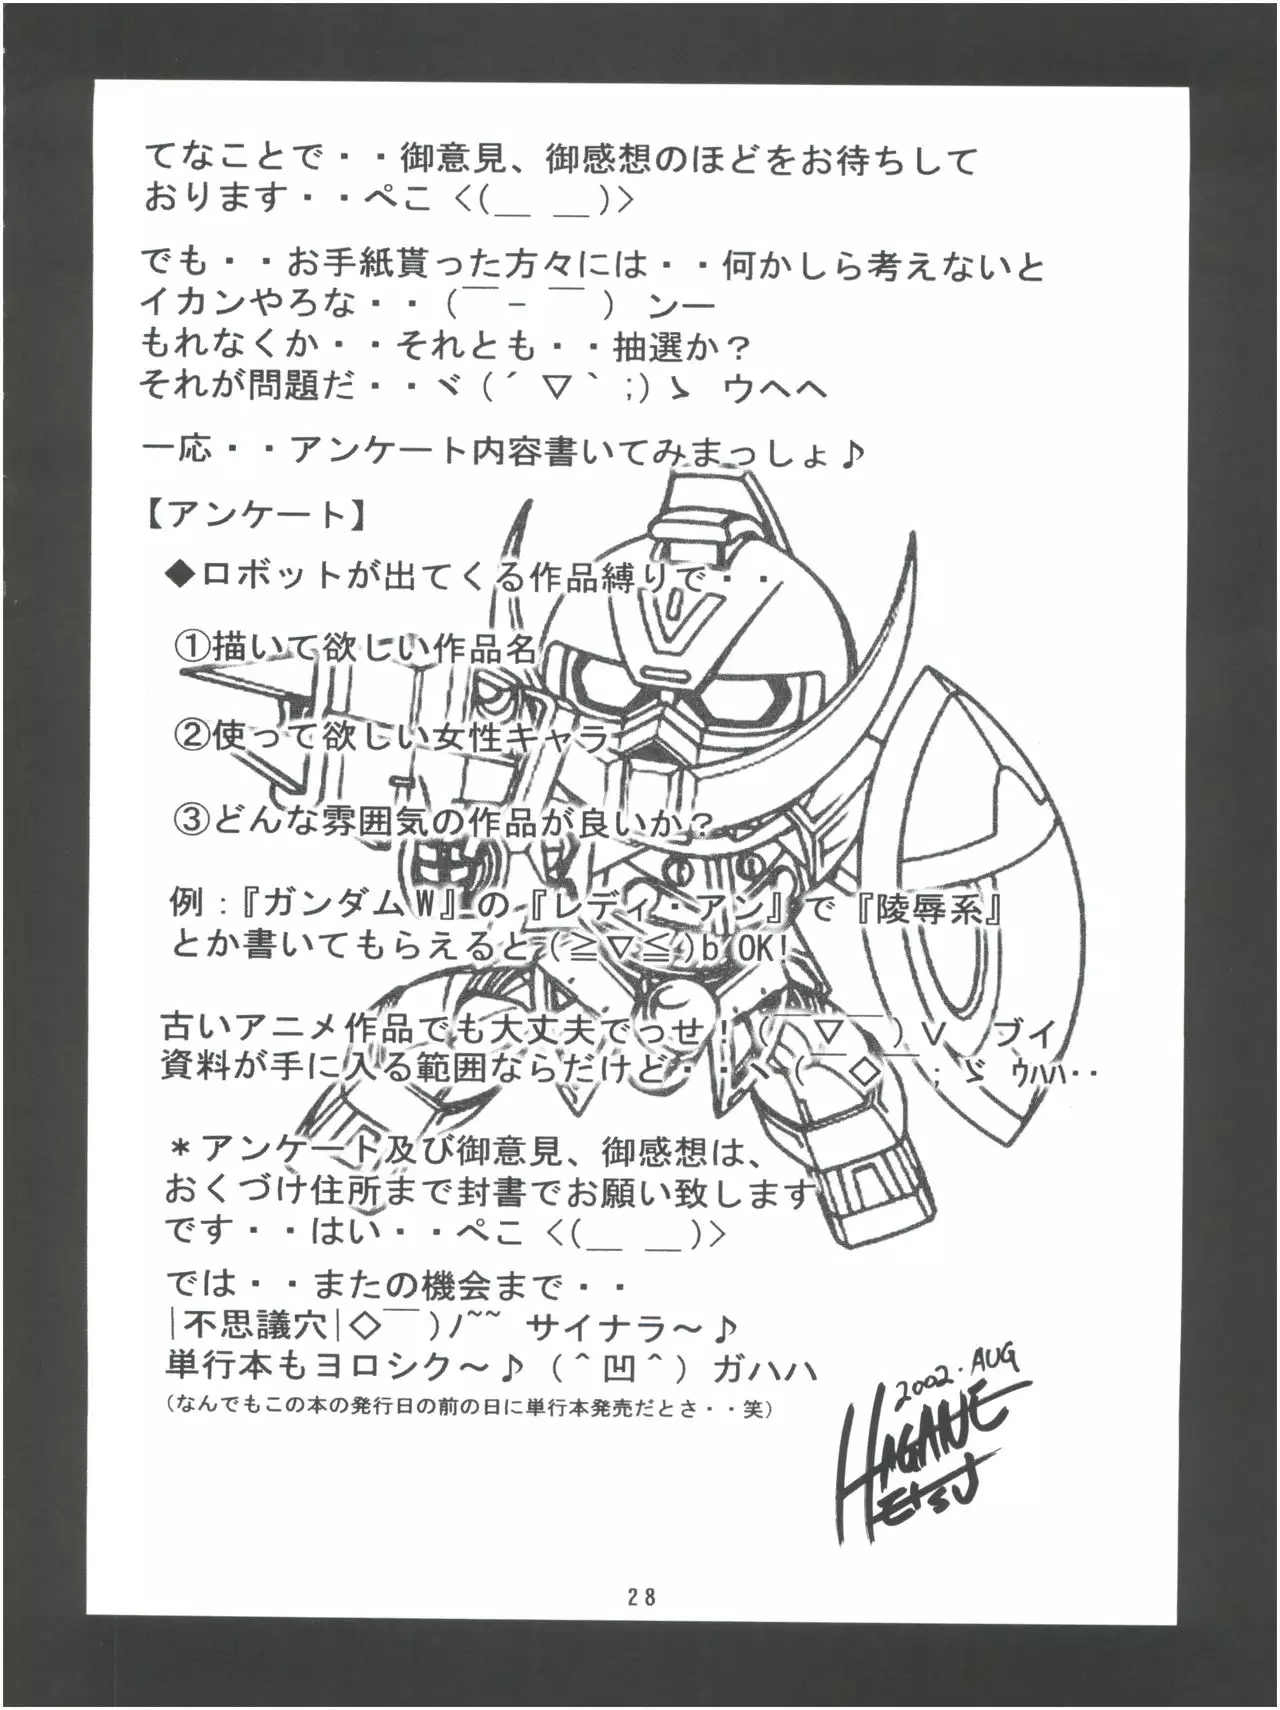 てなことで・・御意見、御感想のほどをお待ちして
おります・・ぺこ <(__ __)>
でも・・お手紙貰った方々には・・何かしら考えないと
イカンやろな・・(￣-￣) ンー
もれなくか・・それとも・・抽選か？
それが問題だ・・ヾ(´▽｀;)ゝ ウヘヘ
一応・・アンケート内容書いてみまっしょ♪
【アンケート】
◆ロボットが出てくる作品縛りで・・
①描いて欲しい作品名
②使って欲しい女性キャラ
③どんな雰囲気の作品が良いか？
例：『ガンダムW』の『レディ・アン』で『陵辱系』
とか書いてもらえると(≧▽≦)b OK!
古いアニメ作品でも大丈夫でっせ！(￣▽￣)V ブイ
資料が手に入る範囲ならだけど・・ヽ(￣◇￣;ゞ ｳﾊﾊ・・
＊アンケート及び御意見、御感想は、
おくづけ住所まで封書でお願い致します
です・・はい・・ぺこ <(__ __)>
では・・またの機会まで・・
|不思議穴|◇￣)ﾉ~~ サイナラ～♪
単行本もヨロシク～♪ (＾凹＾) ガハハ
(なんでもこの本の発行日の前の日に単行本発売だとさ・・笑)
2002.AUG
HAGANE
TETSU
28